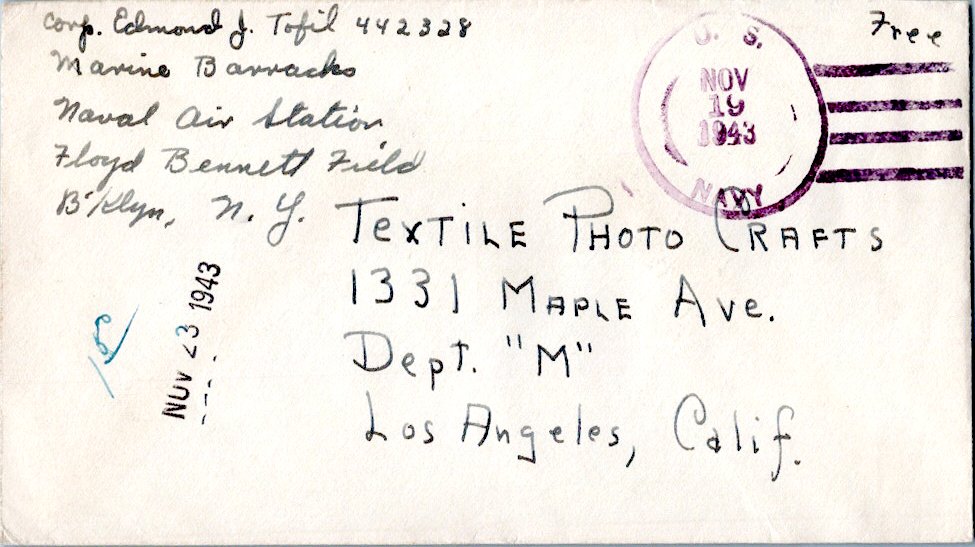 Corp. Edmond J. Tofil 442328
Marine Barracks
Naval Air Station
Floyd Bennett Field
B'klyn, N. Y.
Free
U. S.
NOV
19
1943
NAVY
Textile Photo Crafts
1331 Maple Ave.
Dept. "M"
Los Angeles, Calif.
NOV 23 1943